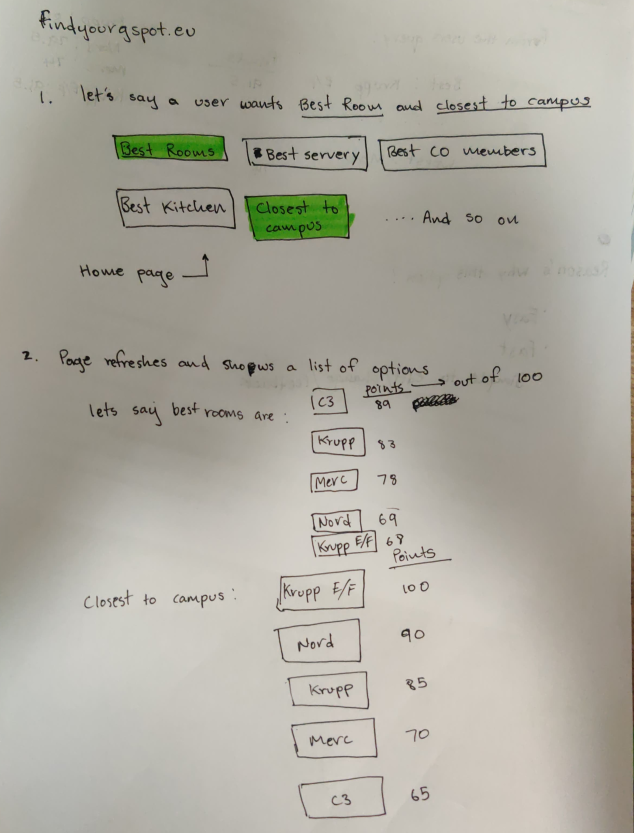 findyourgspot.eu
1. let's say a user wants Best Room and closest to campus
Best Rooms Best servery Best CO members
Best Kitchen Closest to campus .... And so on
Home page
2. Page refreshes and shopws a list of options
points → out of 100
lets say best rooms are : C3 89
Krupp 83
Merc 78
Nord 69
Krupp E/F 68
Points
Closest to campus : Krupp E/F 100
Nord 90
Krupp 85
Merc 70
C3 65